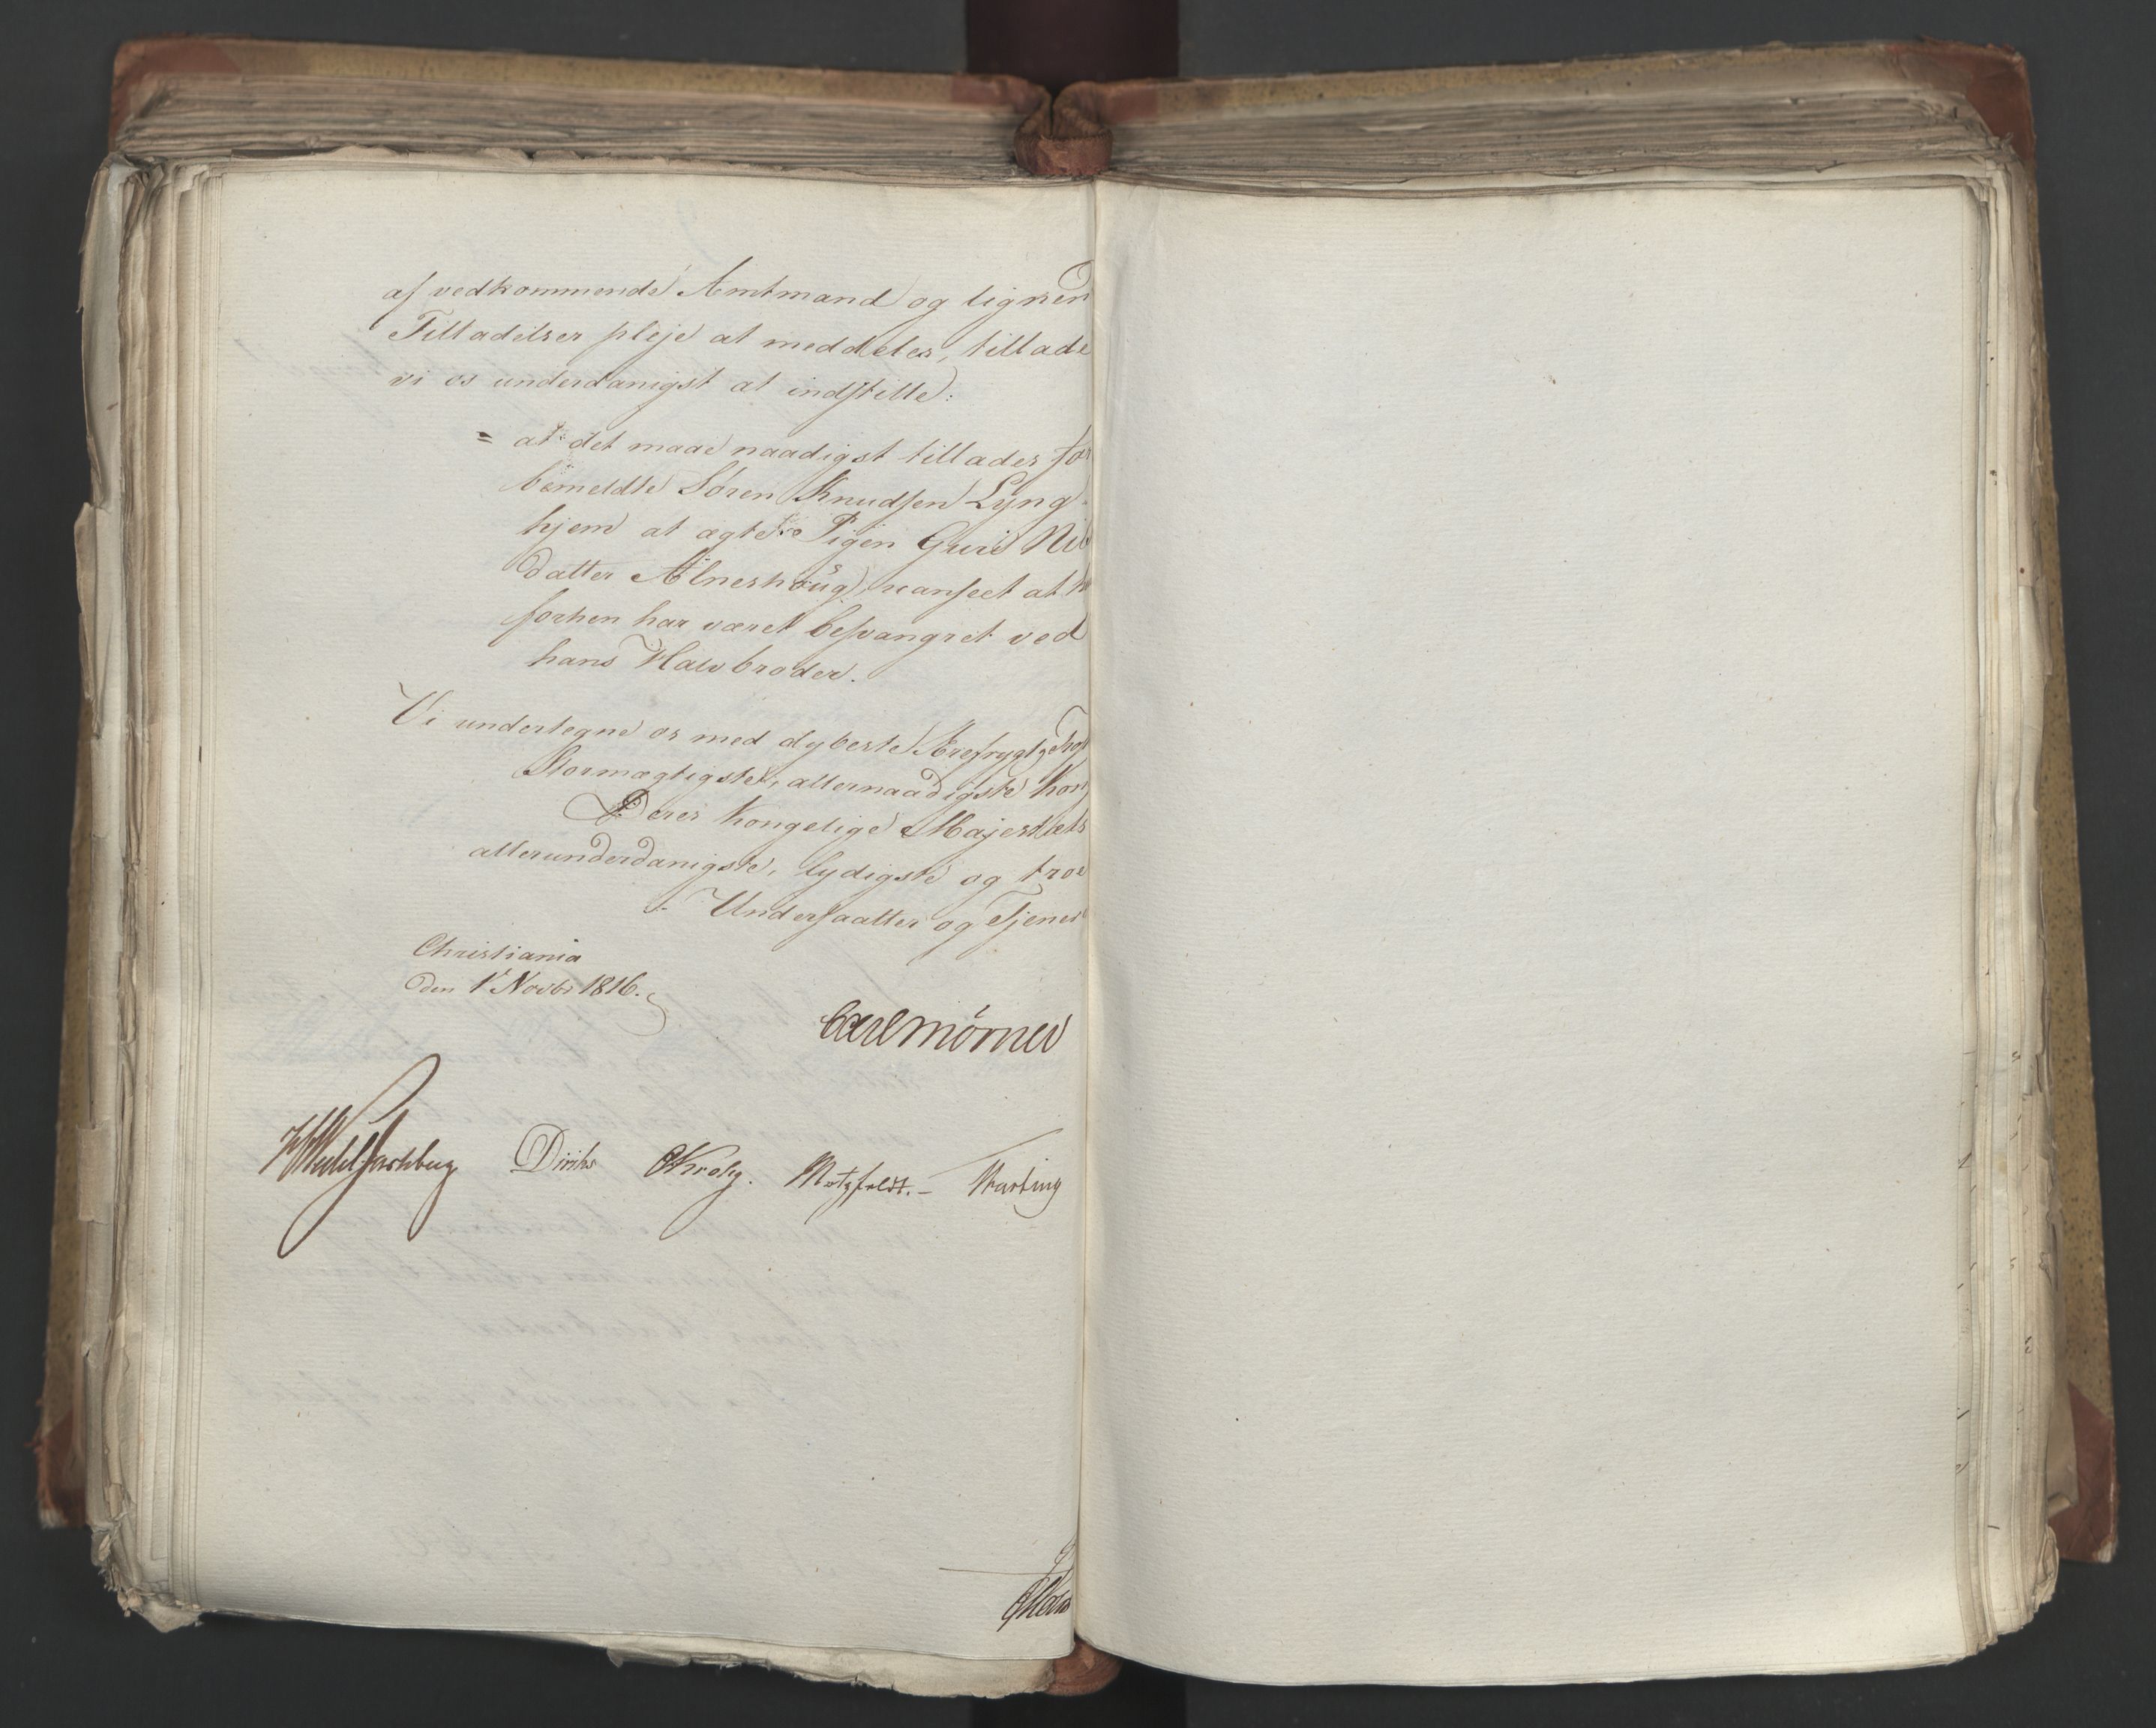 af vedkommende Amtmand og lignen
Tilladelser pleje at meddeles, tillade
vi os underdanigst at indstille:
= at det maae naadigst tillades for
bemeldte Søren Knudsen Lyng-
hjem at ægte Pigen Guri Nils
datter Alneshoug, uanseet at h
forhen har været besvangret ved
hans Halvbroder.
Vi undertegne os med dybeste Ærefrygt
Stormægtigste, allernaadigste Kon
Deres Kongelige Majestæts
allerunderdanigste, lydigste og troe
Undersaatter og Tjenes
Christiania
den 1 Novbr 1816.
Carl Mörner
Wedel Jarlsberg Diriks Krohg. Motzfeldt. -